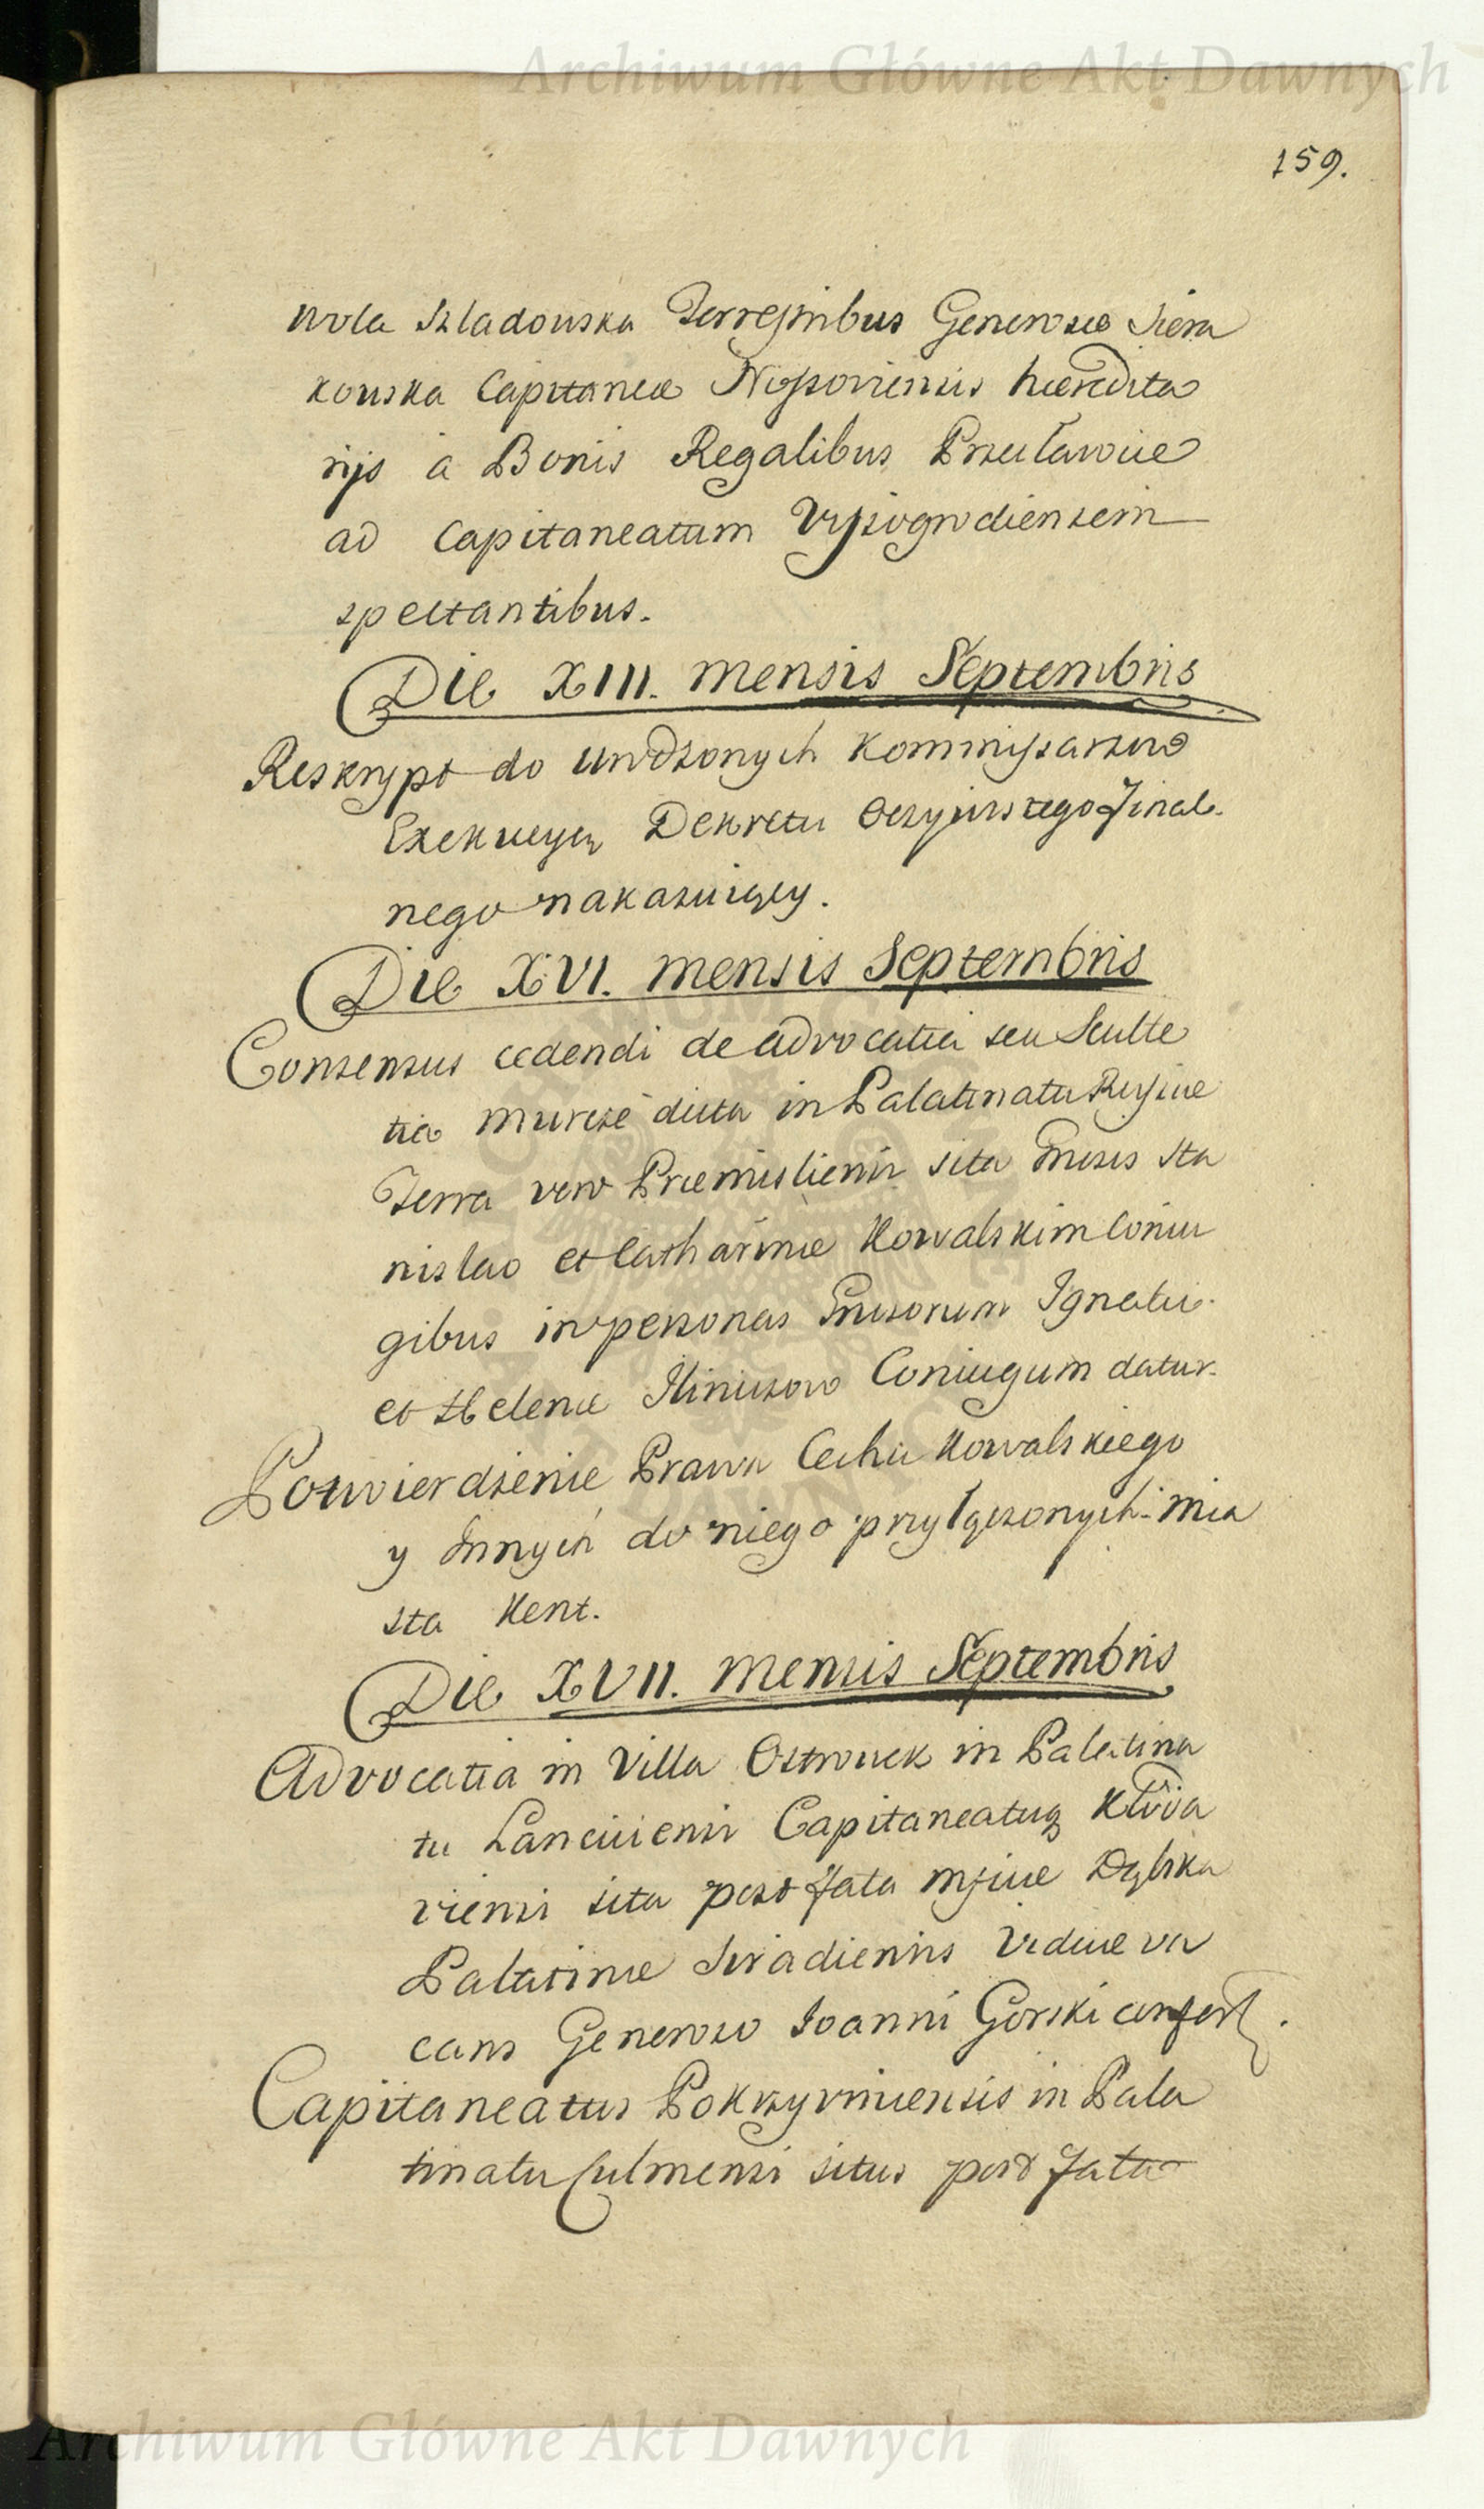 Archiwum Główne Akt Dawnych
159.
Wola Szladowska Terrestribus Generosæ Siera
kowska Capitaneæ Wyssoviensis hæredita
rijs a Bonis Regalibus Przecławice
ad Capitaneatum Vyssogrodiensem
spectantibus.
Die XIII. Mensis Septembris
Reskrypt do Urodzonych Kommissarzow
Exekucyą Dekretu Oczywistego Final
nego nakazuiący.
Die XVI. Mensis Septembris
Consensus cedendi de Advocatia seu Sculte
tia dicta in Palatinatu Russiæ
Terra vero Præmisliensi sita Gnosis Sta
nislao et Catharinæ Kowalskim Coniu
gibus in personas Gnosorum Ignatii
et Helenæ Coniugum datur.
Potwierdzenie Prawa Cechu Kowalskiego
y Innych do niego przyłączonych Mia
sta Kent.
Die XVII. Mensis Septembris
Advocatia in Villa Ostrowek in Palatina
tu Lanciciensi Capitaneatuq Kłoda
viensi sita post fata Mfcæ Dąbska
Palatinæ Siradiensis Viduæ va
cans Generoso Joanni Gorski confert.
Capitaneatus Pokrzywnicensis in Pala
tinatu Culmensi situs post fata
Archiwum Główne Akt Dawnych